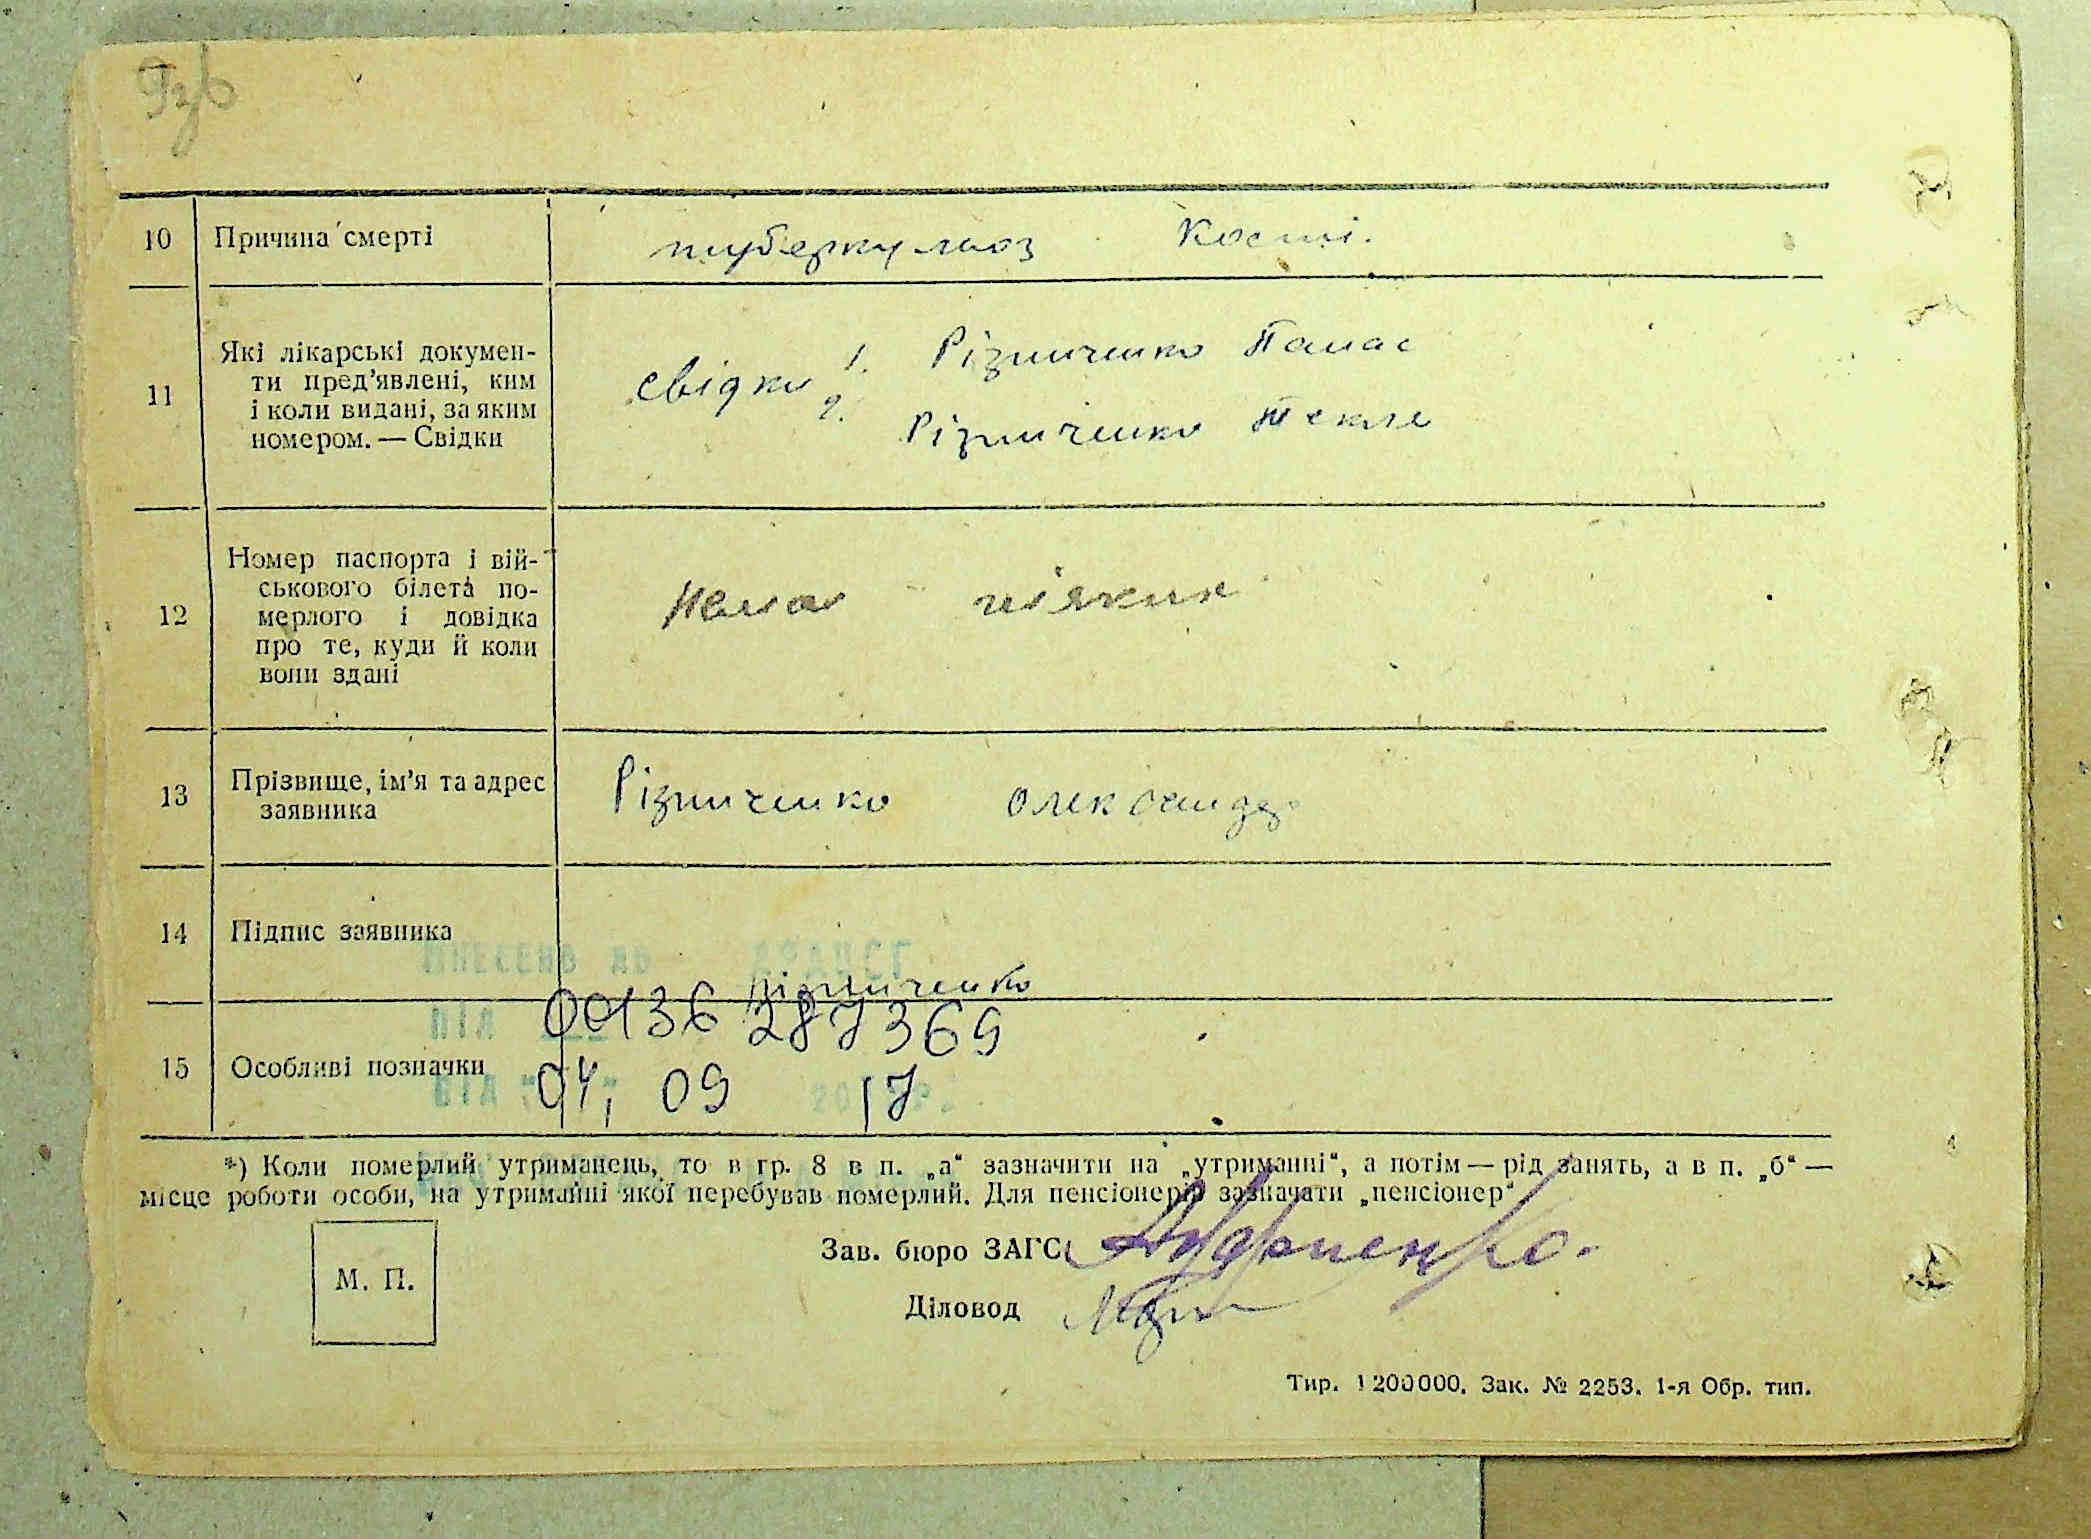 10 Причина смерті туберкульоз Кости.
11 Які лікарські докумен-
ти пред’явлені, ким
і коли видані, за яким
номером. — Свідки
свідки 1. Різниченко Панас
2. Різниченко Текля
12 Номер паспорта і вій-
ськового білета по-
мерлого і довідка
про те, куди й коли
вони здані
Нема ніяких
13 Прізвище, ім’я та адрес
заявника
Різниченко Олександр
14 Підпис заявника
ВНЕСЕНО ДО ДРАЦСГ
Різниченко
ВІД 00136 287369
15 Особливі позначки
ВІД 04, 09 2017 Р.
*) Коли померлий утриманець, то в гр. 8 в п. „а“ зазначити на „утриманні“, а потім — рід занять, а в п. „б“ —
місце роботи особи, на утриманні якої перебував померлий. Для пенсіонерів зазначати „пенсіонер“.
Зав. бюро ЗАГС
Діловод
М. П.
Тир. 1 200 000. Зак. № 2253. 1-я Обр. тип.